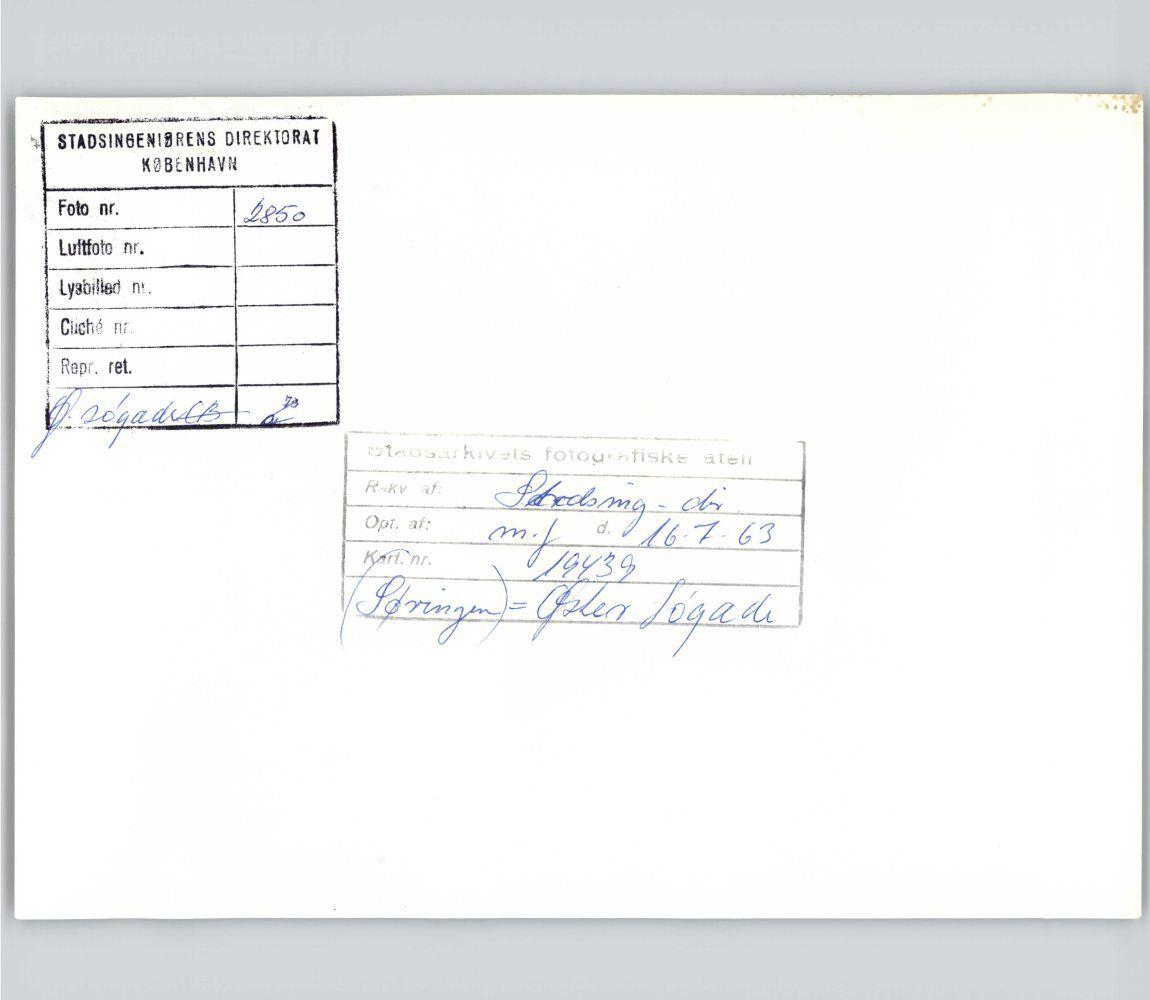 STADSINGENIØRENS DIREKTORAT
KØBENHAVN
Foto nr. 2850
Luftfoto nr.
Lysbilled nr.
Cliché nr.
Repr. ret.
Ø. Søgade
Stadsarkivets fotografiske atell
Rekv af: Stadsing-dir.
Opt. af: m.f d. 16-7-63
Kart. nr. 19439
(Søringen) = Øster Søgade